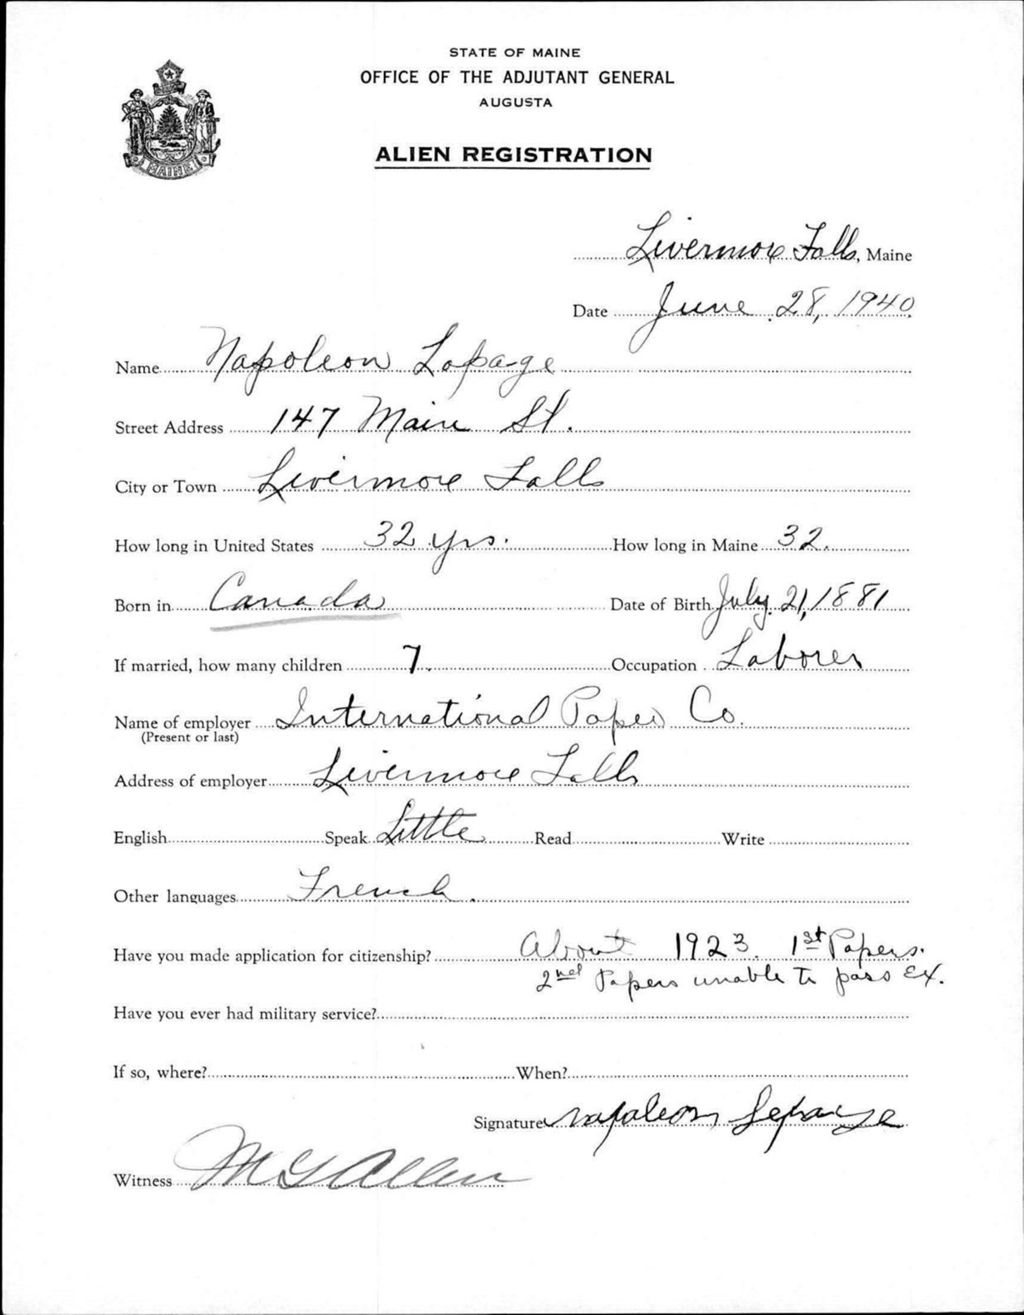 STATE OF MAINE
OFFICE OF THE ADJUTANT GENERAL
AUGUSTA
ALIEN REGISTRATION
MAINE
Livermore Falls, Maine
Date June 28, 1940
Name Napoleon Lapage
Street Address 147 Main St.
City or Town Livermore Falls
How long in United States 32 yrs. How long in Maine 32.
Born in Canada Date of Birth July 21, 1881
If married, how many children 7. Occupation Laborer
Name of employer International Paper Co.
(Present or last)
Address of employer Livermore Falls
English Speak Little Read Write
Other languages French.
Have you made application for citizenship? About 1923. 1st Papers.
2nd Papers unable to pass Ex.
Have you ever had military service?
If so, where? When?
Signature Napoleon Lepage
Witness M G Allen